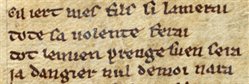 qil iert mes filz si lamerai
tote sa uolente ferai
tot le mien preigne bien sera
ia dangier nul de moi naura